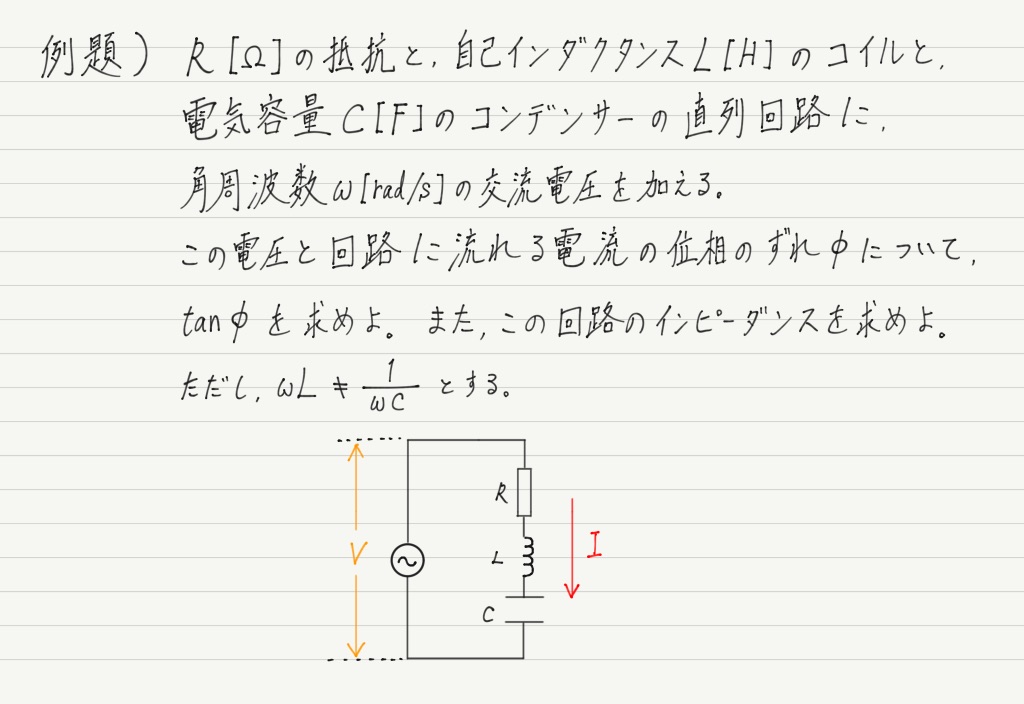 例題) R[Ω]の抵抗と,自己インダクタンスL[H]のコイルと,
電気容量C[F]のコンデンサーの直列回路に,
角周波数ω[rad/s]の交流電圧を加える。
この電圧と回路に流れる電流の位相のずれφについて,
tanφを求めよ。また,この回路のインピーダンスを求めよ。
ただし,ωL≠1/ωCとする。
R
V
L
I
C